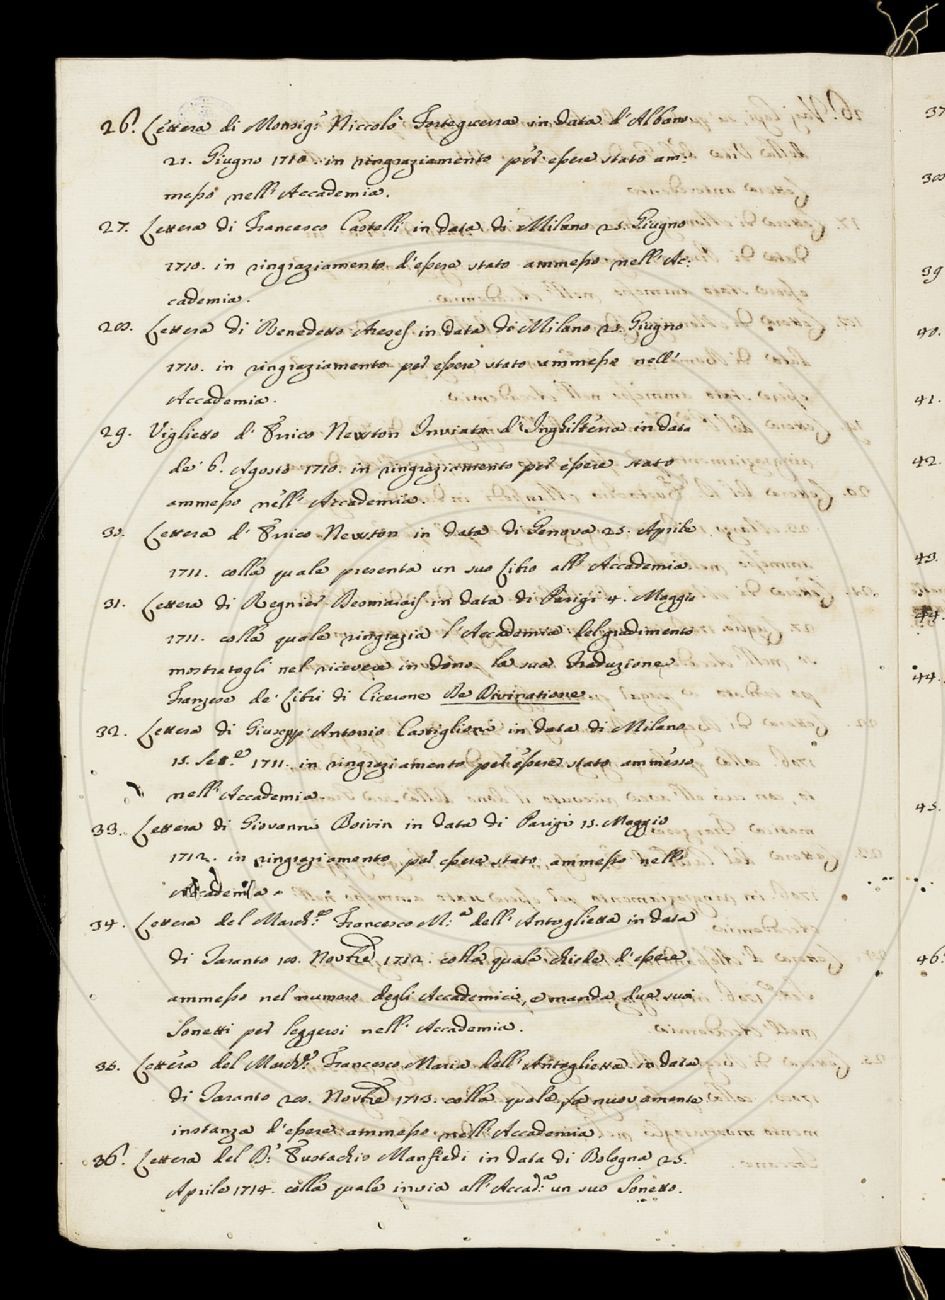 26. Lettera di Monsig.r Niccolò Forteguerra in data d'Albano
21. Giugno 1710. in ringraziamento per essere stato am-
messo nell'Accademia.
27. Lettera di Francesco Castelli in data di Milano 25. Giugno
1710. in ringraziamento d'essere stato ammesso nell'Ac-
cademia.
28. Lettera di Benedetto Aresef in data di Milano 25. Giugno
1710. in ringraziamento per essere stato ammesso nell'
Accademia.
29. Viglietto d'Enrico Newton Inviato d'Inghilterra in data
de' 6. Agosto 1710. in ringraziamento per essere stato
ammesso nell'Accademia.
30. Lettera d'Enrico Newton in data di Genova 25. Aprile
1711. colla quale presenta un suo Libro all'Accademia.
31. Lettera di Regnier in data di Parigi 4. Maggio
1711. colla quale ringrazia l'Accademia del gradimento
mostratogli nel ricevere in dono la sua traduzione
Franzese de' Libri di Cicerone De Divinatione.
32. Lettera di Giusepp'Antonio Castiglione in data di Milano
15. Sett.re 1711. in ringraziamento per essere stato ammesso
nell'Accademia.
33. Lettera di Giovanni Boivin in data di Parigi 15. Maggio
1712. in ringraziamento per essere stato ammesso nell'
Accademia.
34. Lettera del March.e Francesco M.a dell'Antoglietta in data
di Taranto 18. Nov.re 1712. colla quale chiede d'essere
ammesso nel numero degli Accademici, e manda due suoi
Sonetti per leggersi nell'Accademia.
35. Lettera del March.e Francesco Maria dell'Antoglietta in data
di Taranto 28. Nov.re 1713. colla quale fa nuovamente
instanza d'essere ammesso nell'Accademia.
36. Lettera del D.r Eustachio Manfredi in data di Bologna 25.
Aprile 1714. colla quale invia all'Accad.a un suo Sonetto.
37
38
39
40.
41.
42.
43.
44.
44.
45.
46.